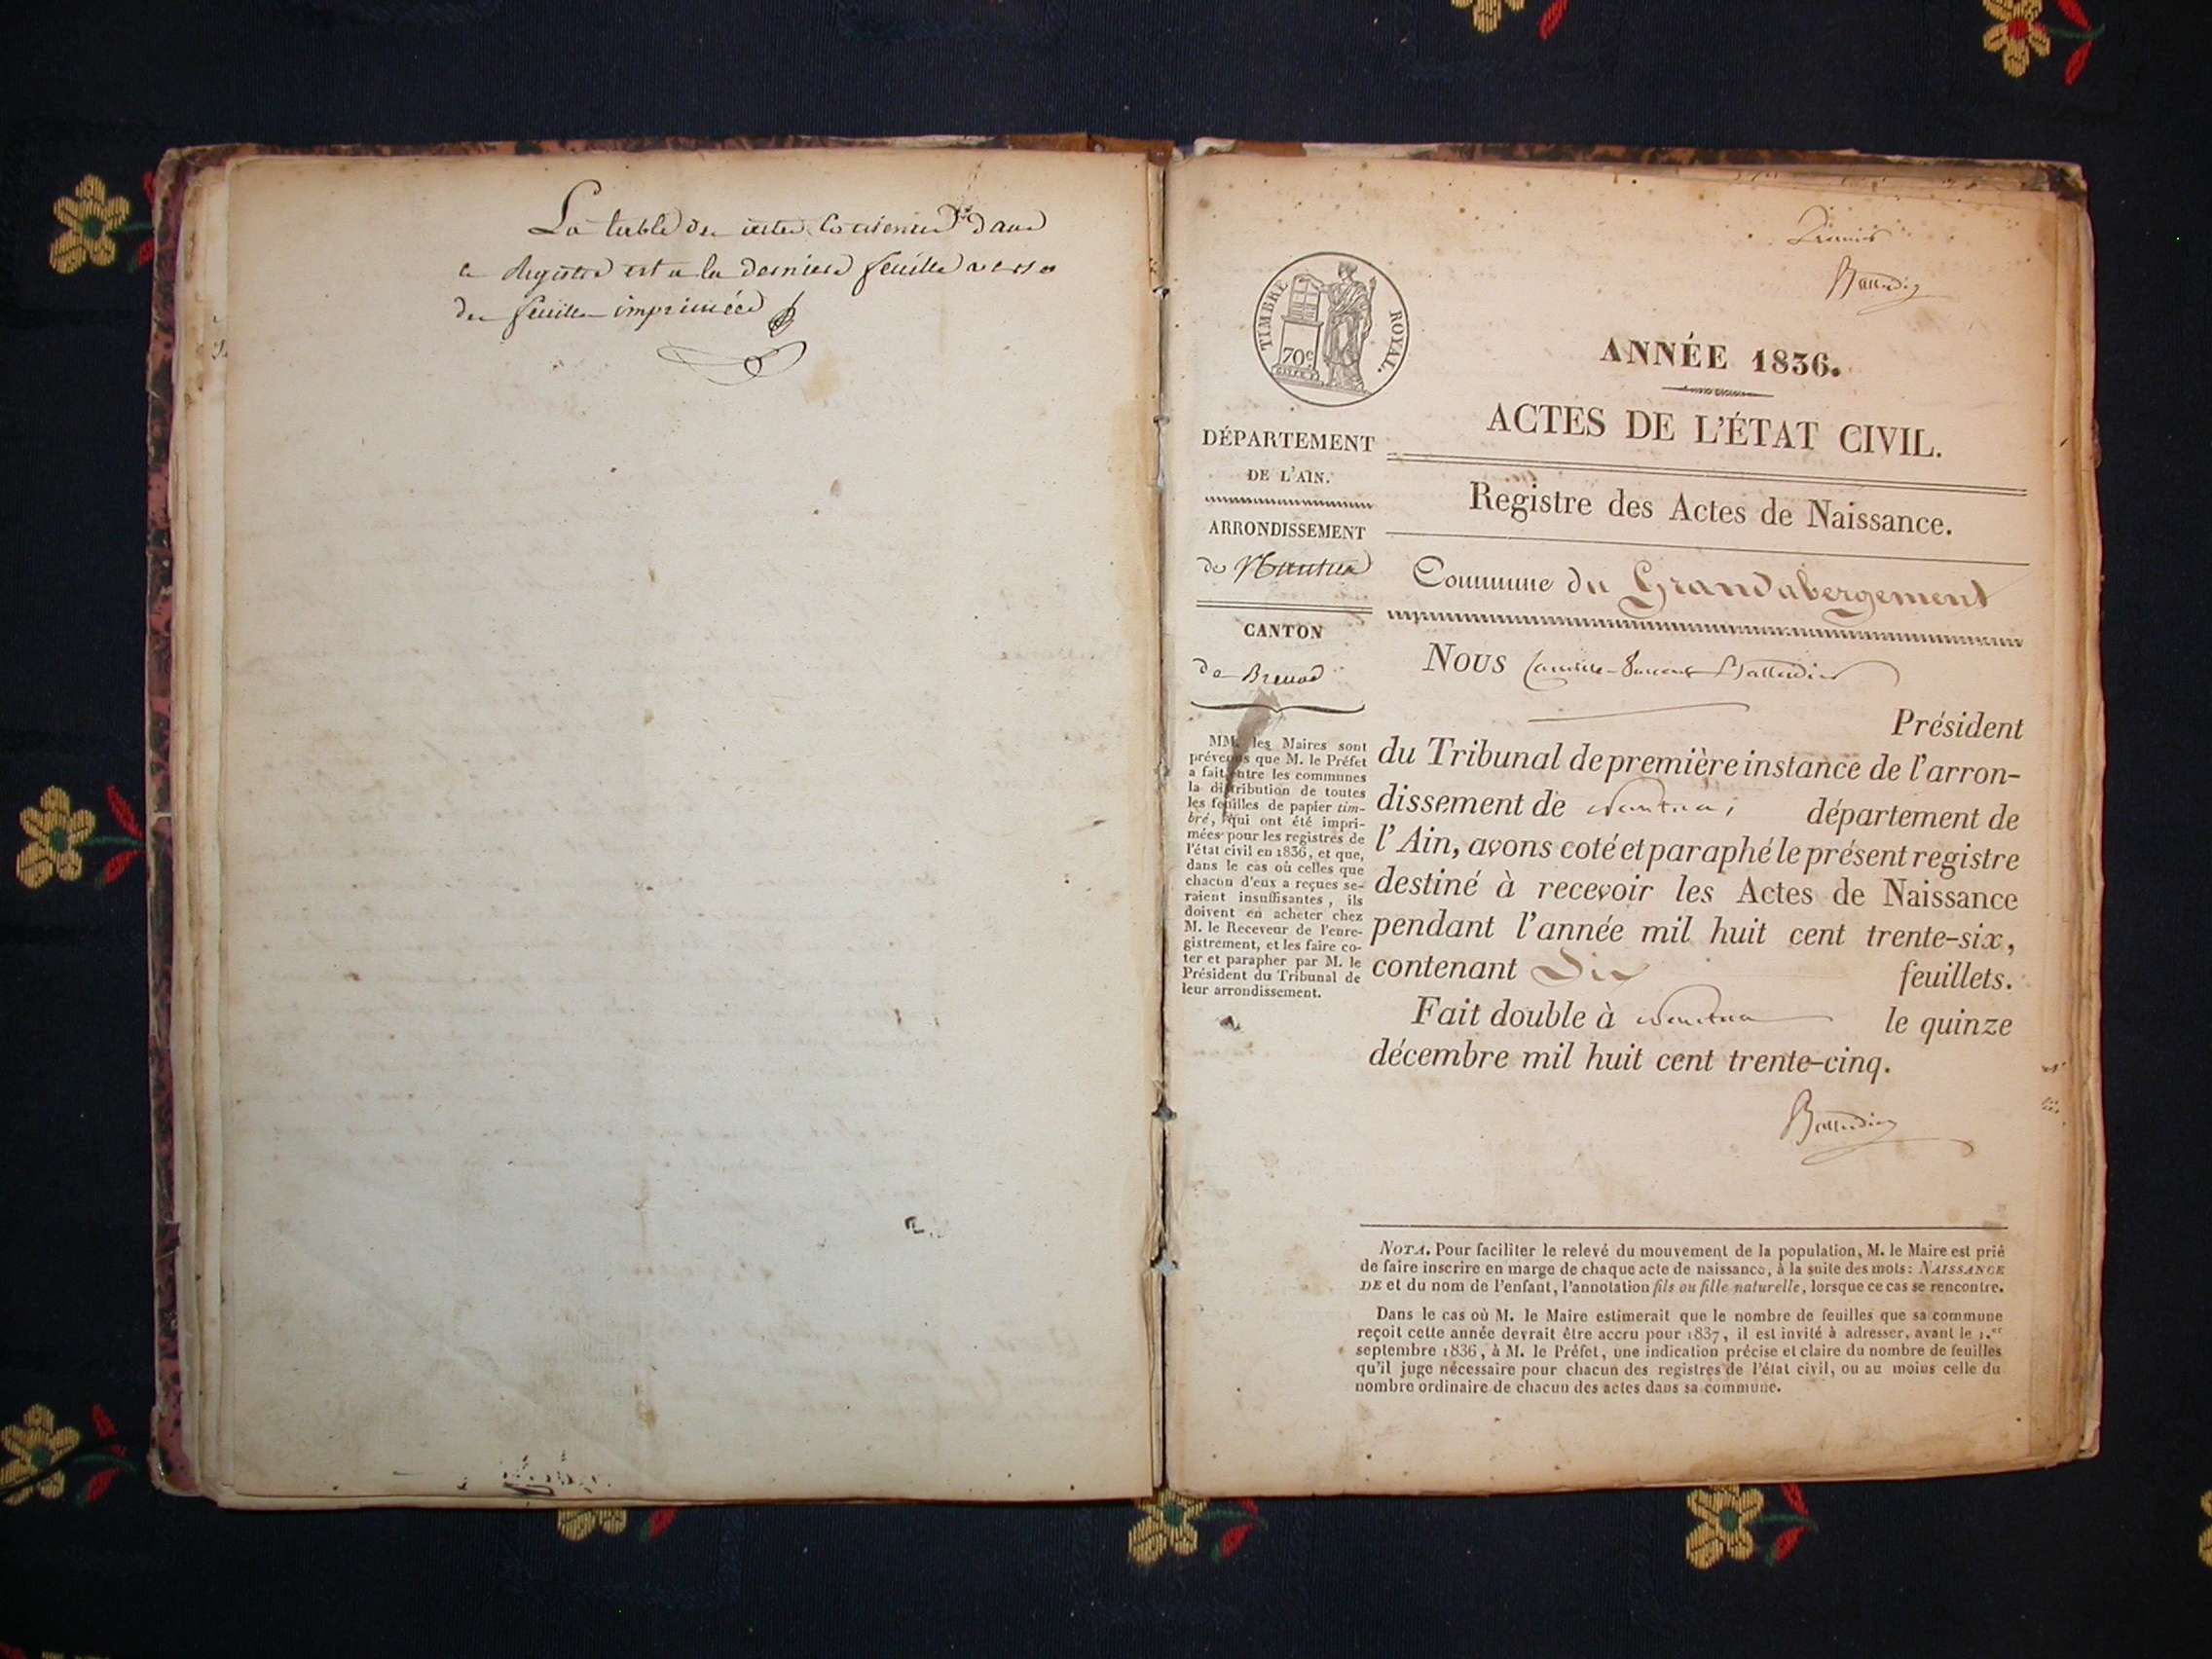 La table des actes Contenus dans
ce Registre est a la derniere feuille verso
des feuilles imprimées
Premier
Balludin
TIMBRE ROYAL.
70c
ANNÉE 1836.
ACTES DE L'ÉTAT CIVIL.
DÉPARTEMENT
DE L'AIN.
ARRONDISSEMENT
de Nantua
CANTON
de Brenod
MM. les Maires sont
prévenus que M. le Préfet
a fait entre les communes
la distribution de toutes
les feuilles de papier tim-
bré, qui ont été impri-
mées pour les registres de
l'état civil en 1836, et que,
dans le cas où celles que
chacun d'eux a reçues se-
raient insuffisantes, ils
doivent en acheter chez
M. le Receveur de l'enre-
gistrement, et les faire co-
ter et parapher par M. le
Président du Tribunal de
leur arrondissement.
Registre des Actes de Naissance.
Commune du Grandabergement
Nous Camille
Président
du Tribunal de première instance de l'arron-
dissement de Nantua, département de
l'Ain, avons coté et paraphé le présent registre
destiné à recevoir les Actes de Naissance
pendant l'année mil huit cent trente-six,
contenant Dix feuillets.
Fait double à Nantua le quinze
décembre mil huit cent trente-cinq.
NOTA. Pour faciliter le relevé du mouvement de la population, M. le Maire est prié
de faire inscrire en marge de chaque acte de naissance, à la suite des mots: NAISSANCE
DE et du nom de l'enfant, l'annotation fils ou fille naturelle, lorsque ce cas se rencontre.
Dans le cas où M. le Maire estimerait que le nombre de feuilles que sa commune
reçoit cette année devrait être accru pour 1837, il est invité à adresser, avant le 1.er
septembre 1836, à M. le Préfet, une indication précise et claire du nombre de feuilles
qu'il juge nécessaire pour chacun des registres de l'état civil, ou au moins celle du
nombre ordinaire de chacun des actes dans sa commune.